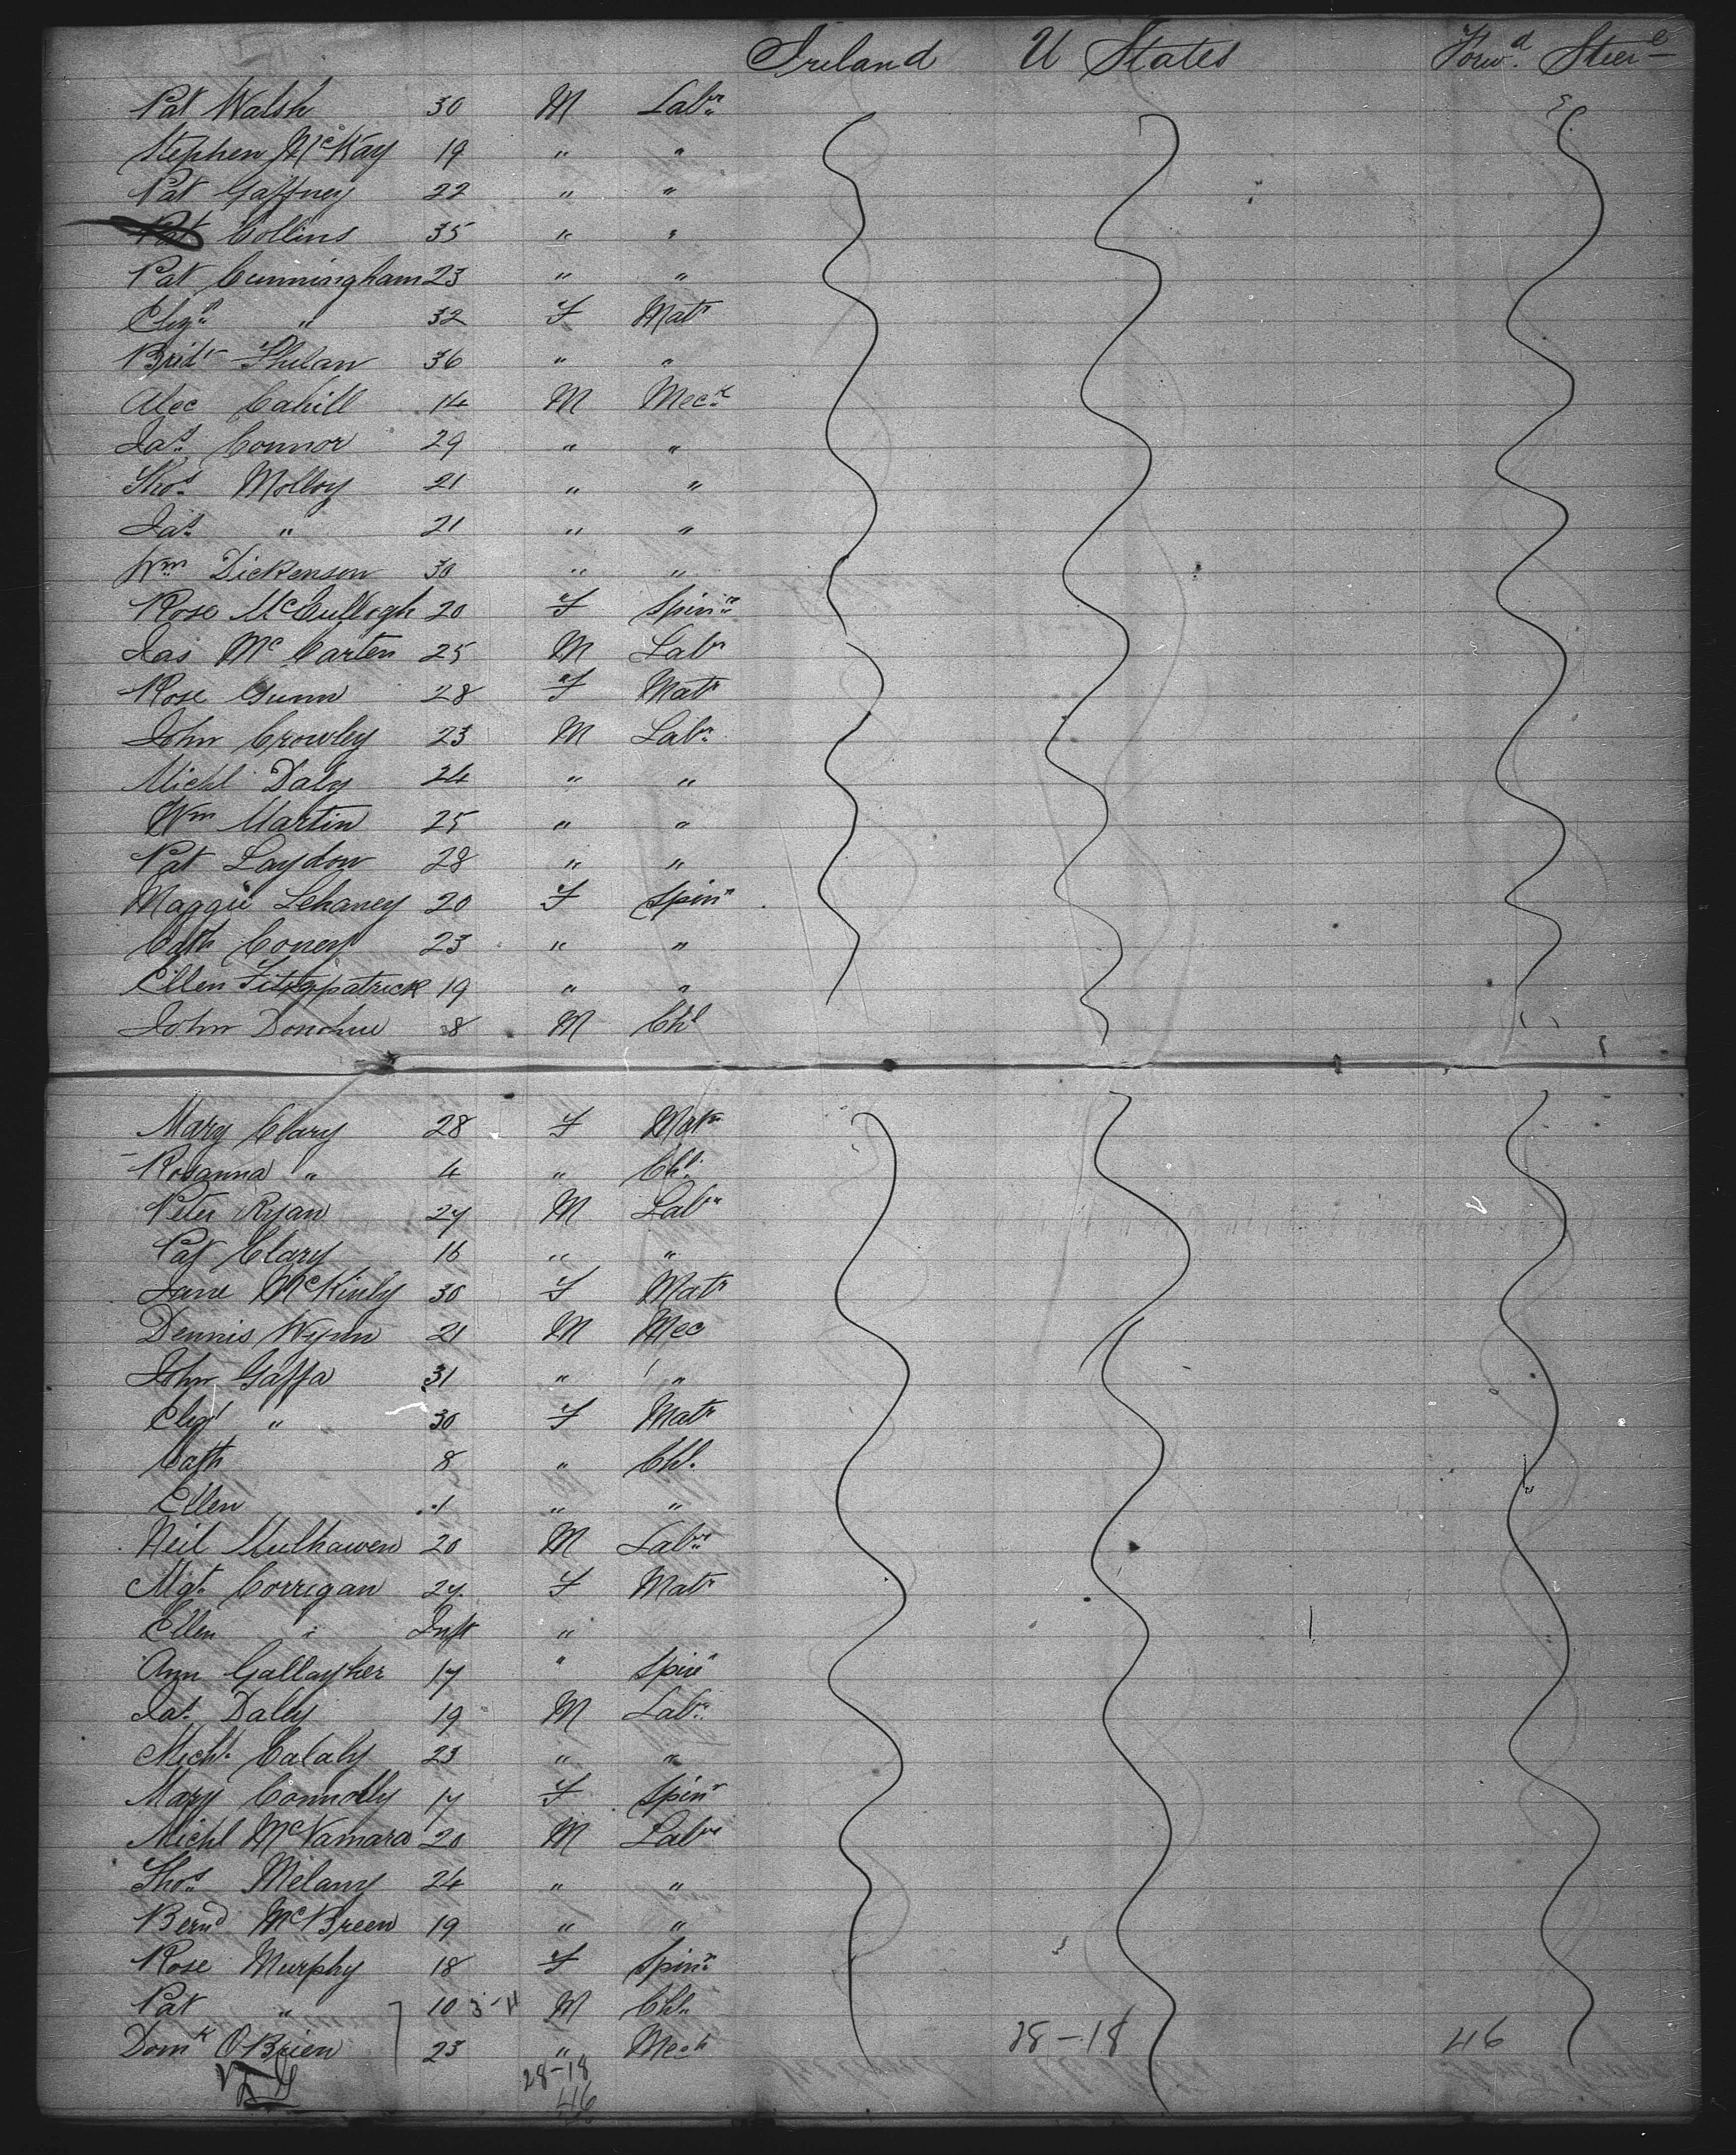 Ireland U States Forwd. Steere
Pat Walsh 30 M Labr.
Stephen McKay 19 " "
Pat Gaffney 22 " "
Pat Collins 35 " "
Pat Cunningham 23 " "
Elizh " 32 F Matr
Bridt Phelan 36 " "
Alec Cahill 14 M Meck
Jas. Connor 29 " "
Thos. Molloy 21 " "
Jas. " 21 " "
Wm Dickenson 30 " "
Rose McCullogh 20 F Spinr
Jas McCarten 25 M Labr
Rose Gunn 28 F Matr
John Crowley 23 M Labr.
Michl Daly 24 " "
Wm Martin 25 " "
Pat Laydon 28 " "
Maggie Lehaney 20 F Spinr
Cath Coney 23 " "
Ellen Fitzpatrick 19 " "
John Donohue 8 M Chl
Mary Clary 28 F Matr
Rosanna " 4 " Chl.
Peter Ryan 27 M Labr
Pat Clary 16 " "
Jane McKinly 30 F Matr
Dennis Wynn 21 M Mec
John Gaffa 31 " "
Elizh " 30 F Matr
Cath 8 " Chl.
Ellen 1 " "
Neil Mulhawen 20 M Labr
Mgt. Corrigan 27 F Matr
Ellen " Inft "
Ann Gallagher 17 " Spinr
Jas. Daley 19 M Labr.
Michl. Calaly 23 " "
Mary Connolly 17 F Spinr
Michl McNamara 20 M Labr
Thos. Melany 24 " "
Bernd McBreen 19 " "
Rose Murphy 18 F Spinr.
Pat " 10 3-11 M Chl.
Domk OBrien 23 " Mech 28-18 46
28-18
46